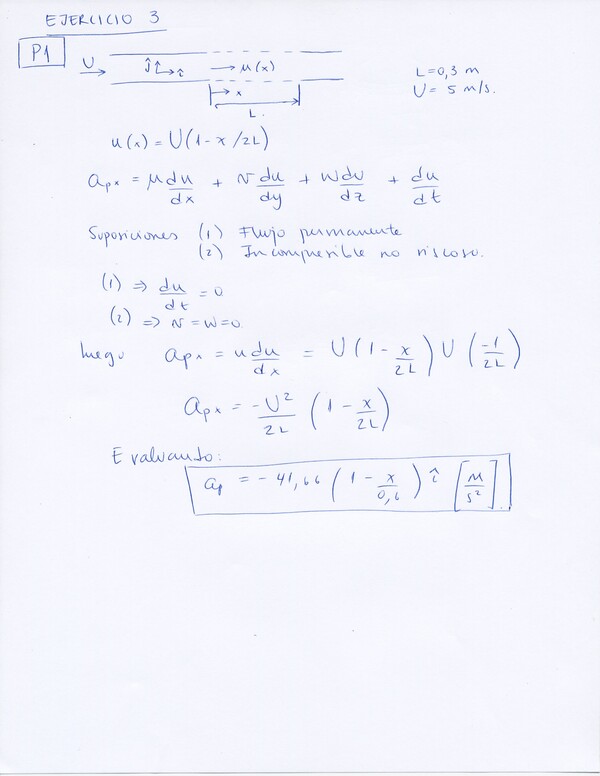 EJERCICIO 3
P1
U
ĵ î → u(x)
x
L.
L=0,3 m
U= 5 m/s.
u(x) = U(1-x/2L)
apx = u du/dx + v du/dy + w du/dz + du/dt
Suposiciones (1) Flujo permanente
(2) Incompresible no viscoso.
(1) ⇒ du/dt = 0
(2) ⇒ v=w=0.
luego apx = u du/dx = U(1- x/2L) U (-1/2L)
apx = -U²/2L (1 - x/2L)
Evaluando:
ap = - 41,66 (1 - x/0,6) î [m/s²].